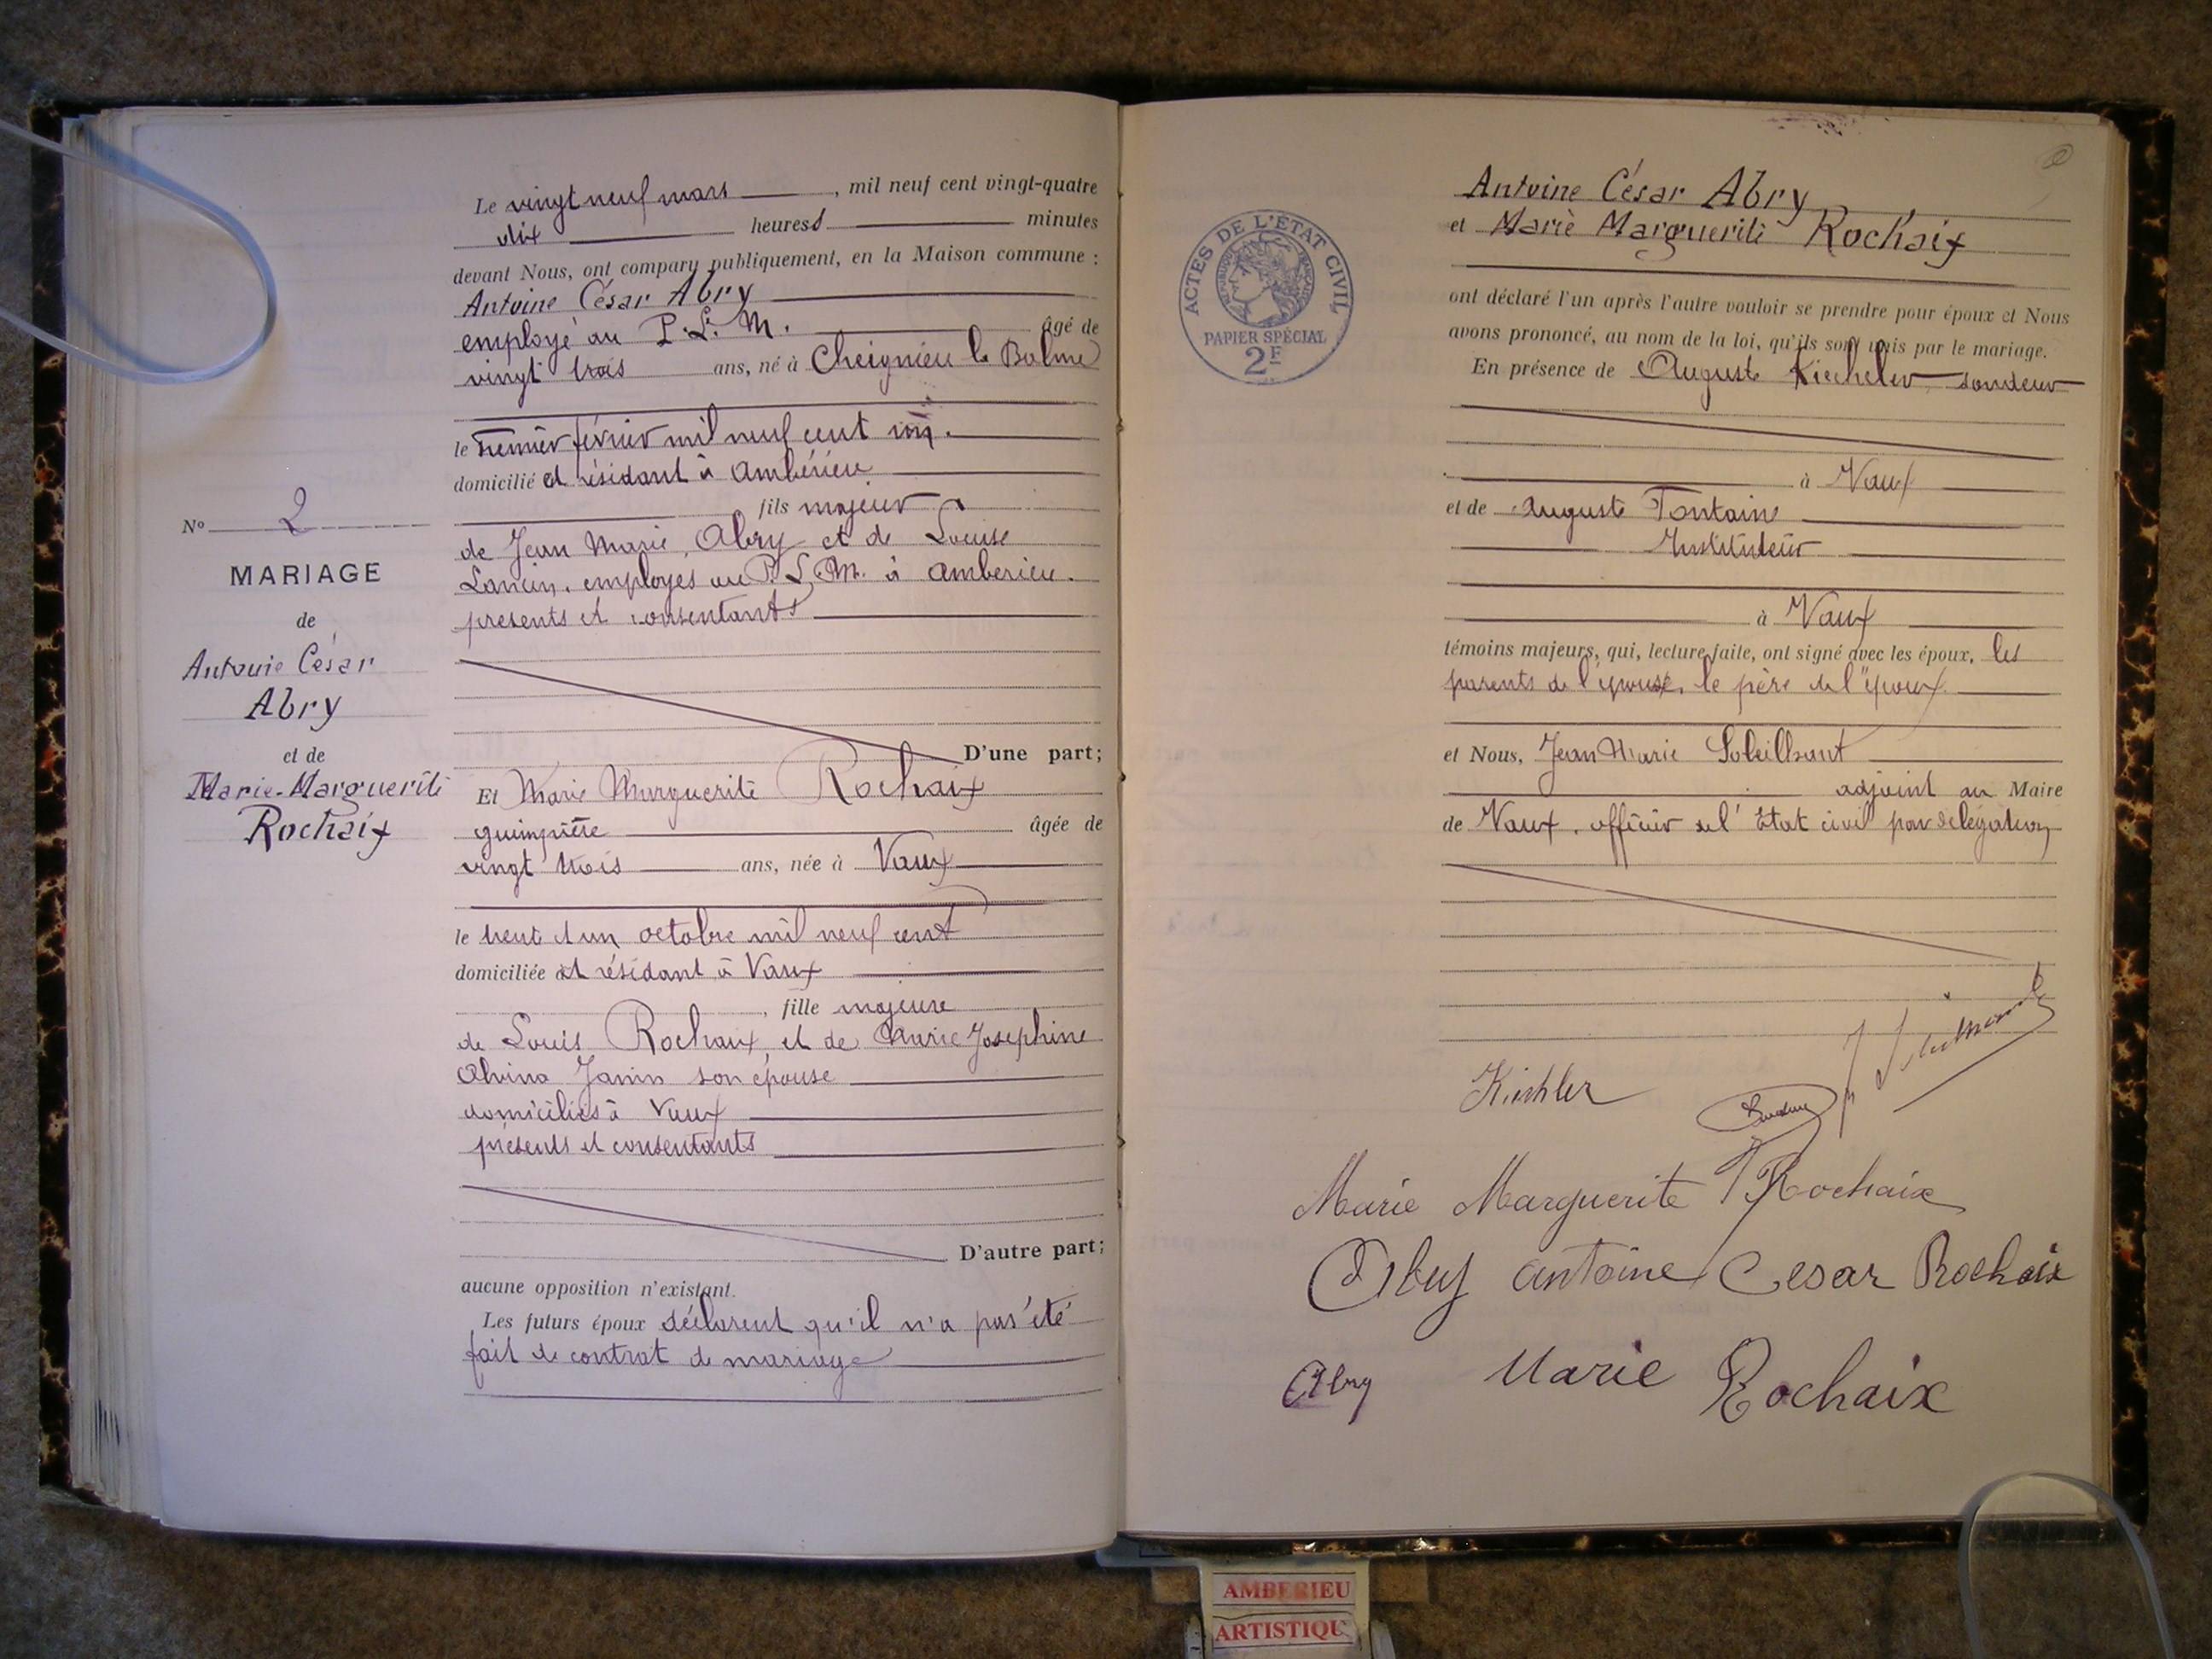 Nº 2
MARIAGE
de
Antoine César
Abry
et de
Marie-Marguerite
Rochaix
Le vingt neuf mars, mil neuf cent vingt-quatre
dix heures minutes
devant Nous, ont comparu publiquement, en la Maison commune :
Antoine César Abry
employé au P. L. M. âgé de
vingt trois ans, né à Cheignieu la Balme
le premier février mil neuf cent un.
domicilié et résidant à Ambérieu
fils majeur
de Jean Marie Abry et de Louise
Lancin, employés au P. L. M. à Amberieu.
présents et consentants
D'une part;
Et Marie Marguerite Rochaix
guimpière âgée de
vingt trois ans, née à Vaux
le trent et un octobre mil neuf cent
domiciliée et résidant à Vaux
, fille majeure
de Louis Rochaix, et de Marie Josephine
Janin son épouse
domiciliés à Vaux
présents et consentants
D'autre part;
aucune opposition n'existant.
Les futurs époux déclarent qu'il n'a pas été
fait de contrat de mariage
ACTES DE L'ÉTAT CIVIL
RÉPUBLIQUE FRANÇAISE
PAPIER SPÉCIAL
2F
Antoine César Abry
et Marie Marguerite Rochaix
ont déclaré l'un après l'autre vouloir se prendre pour époux et Nous
avons prononcé, au nom de la loi, qu'ils sont unis par le mariage.
En présence de Auguste soudeur
à Vaux
et de Auguste Fontaine
Instituteur
à Vaux
témoins majeurs, qui, lecture faite, ont signé avec les époux, les
parents de l'épouse, le père de l'époux.
et Nous, Jean Marie Soleilhant
adjoint au Maire
de Vaux, officier de l'État civil par délégation
Marie Marguerite Rochaix
Abry Antoine Cesar Rochaix
Abry Marie Rochaix
AMBERIEU
ARTISTIQU